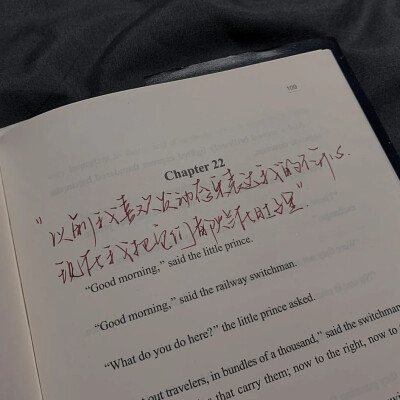 109
Chapter 22
"以前我喜欢发动态来表达我的不开心.
现在我把它们都烂在肚子里"
"Good morning," said the little prince.
"Good morning," said the railway switchman.
"What do you do here?" the little prince asked.
out travelers, in bundles of a thousand," said the switchman
that carry them; now to the right, now to